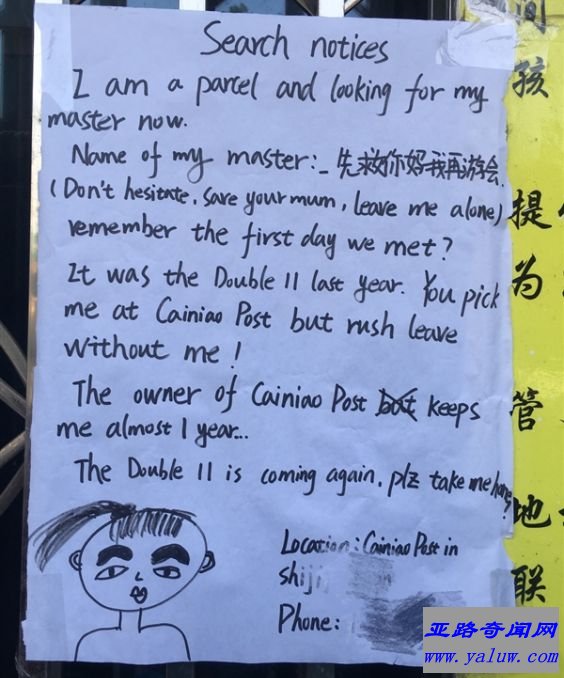 Search notices
I am a parcel and looking for my
master now.
Name of my master: 先救你妈我再游会
(Don't hesitate, save your mum, leave me alone)
remember the first day we met?
It was the Double 11 last year. You pick
me at Cainiao Post but rush leave
without me!
The owner of Cainiao Post but keeps
me almost 1 year...
The Double 11 is coming again. plz take me home?
Location: Cainiao Post in
shiji
Phone:
间
孩
提
为
管
地
联
亚路奇闻网
www.yaluw.com